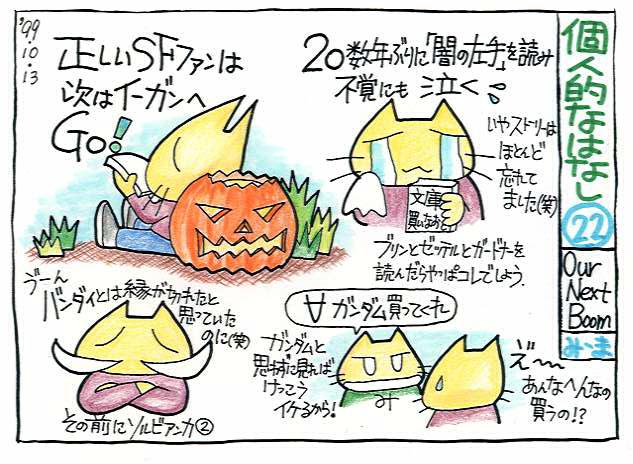 '99.10.13
個人的なはなし
22
Our
Next
Boom
み・ま
正しいSFファンは
次はイーガンへ
Go!
20数年ぶりに「闇の左手」を読み
不覚にも泣く
いやストーリーは
ほとんど
忘れて
ました(笑)
文庫
買いなおし
ブリンとゼッテルとガードナーを
読んだらやっぱコレでしょう。
うーん
バンダイとは縁が切れたと
思っていた
のに(笑)
その前にソルビアンカ②
∀ガンダム買ってくれ
ガンダムと
思わずに見れば
けっこう
イケるから!
み
え゛〜
あんなへんなの
買うの!?